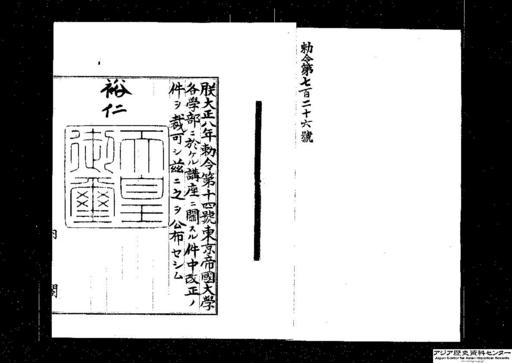 勅令第七百二十六號
朕大正八年勅令第十四號東京帝國大學
各學部ニ於ケル講座ニ關スル件中改正ノ
件ヲ裁可シ茲ニ之ヲ公布セシム
裕仁
天皇
御璽
内閣
アジア歴史資料センター
Japan Center for Asian Historical Records